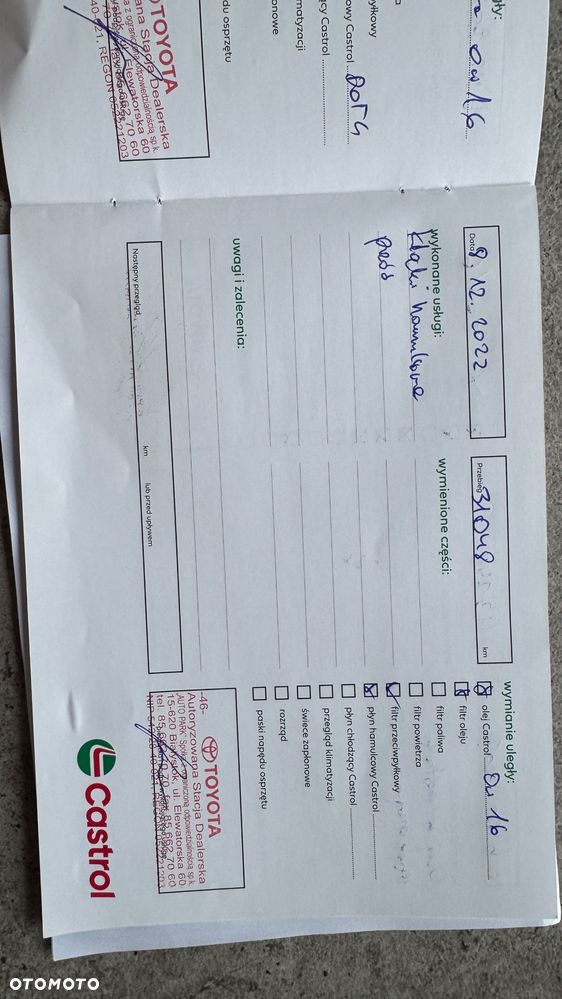 TOYOTA
Dealerska
Elewatorska 60
70 60
40-521, REGON
du osprzętu
onowe
matyzacji
ący Castrol
DOT4
owy Castrol
yłkowy
a
0W16
ęły:
Data 8.12.2022
Przebieg 31048 km
wykonane usługi:
wymienione części:
Klocki hamulcowe
przód
uwagi i zalecenia:
Następny przegląd
km
lub przed upływem
wymianie uległy:
olej Castrol 0W16
filtr oleju
filtr paliwa
filtr powietrza
filtr przeciwpyłkowy
płyn hamulcowy Castrol
płyn chłodzący Castrol
przegląd klimatyzacji
świece zapłonowe
rozrząd
paski napędu osprzętu
-46-
TOYOTA
Autoryzowana Stacja Dealerska
"AUTO PARK" Spółka z ograniczoną odpowiedzialnością sp.k.
15-620 Białystok, ul. Elewatorska 60
Castrol
OTOMOTO